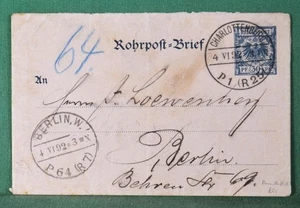 64
Rohrpost-Brief
CHARLOTTENBURG
4 VI 92
P 1. (R 29)
An
Herrn F. Loewenberg
BERLIN, W.
4 VI 92 * 3
P 64 (R 7)
Berlin
Behren Str 69.